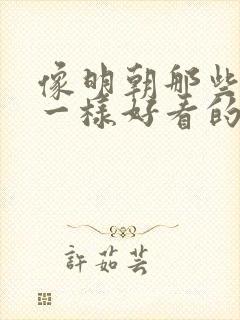 像明朝那些
一样好看的
許茹芸